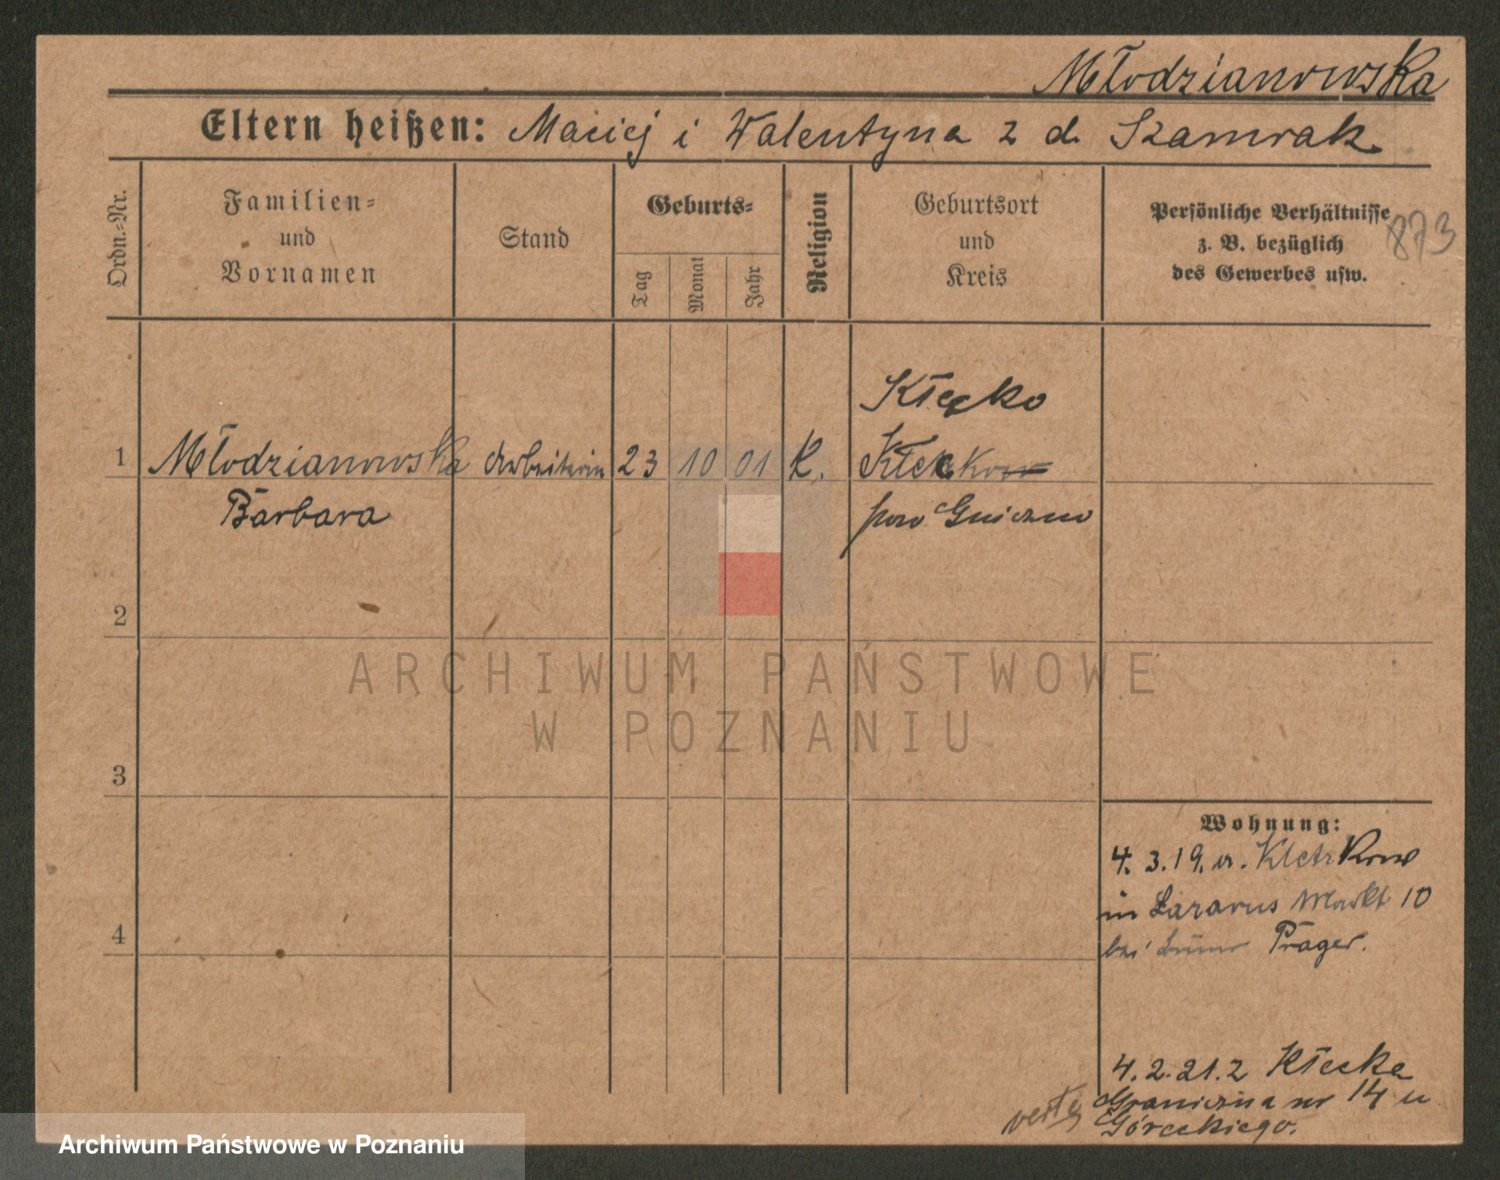 Młodzianowska
Eltern heißen: Maciej i Walentyna z d. Szamrak
Ordn.-Nr.
Familien-
und
Vornamen
Stand
Geburts-
Tag
Monat
Jahr
Religion
Geburtsort
und
Kreis
Persönliche Verhältnisse
z. B. bezüglich
des Gewerbes usw.
873
Kłecko
1 Młodzianowska Arbeiterin 23 10 01 K.
Barbara
pow Gniezno
2
ARCHIWUM PAŃSTWOWE
W POZNANIU
3
4
Wohnung:
4. 3. 19. v. Kletzkow
in Lazarus Markt 10
bei Präger.
4. 2. 21. z Kłecka
Graniczna nr 14 u
Góreckiego.
verte
Archiwum Państwowe w Poznaniu